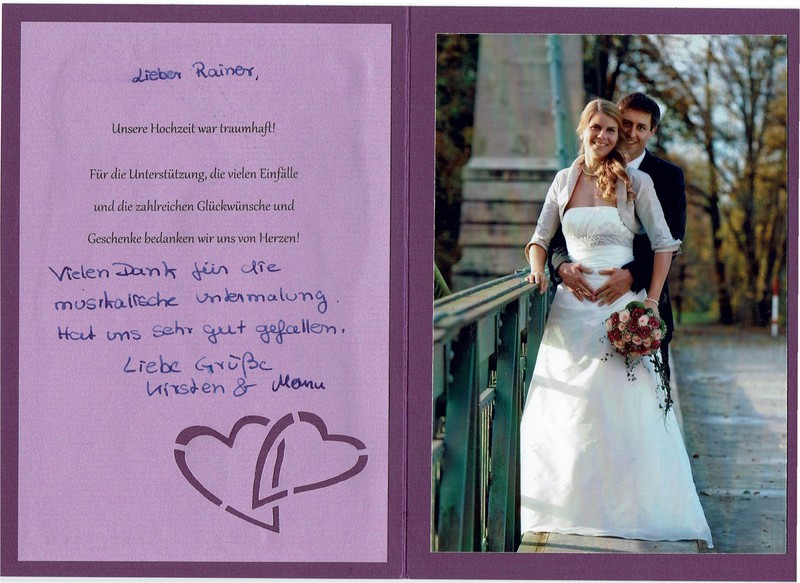 Lieber Rainer,
Unsere Hochzeit war traumhaft!
Für die Unterstützung, die vielen Einfälle
und die zahlreichen Glückwünsche und
Geschenke bedanken wir uns von Herzen!
Vielen Dank für die
musikalische untermalung.
Hat uns sehr gut gefallen.
Liebe Grüße
Kirsten & Manu